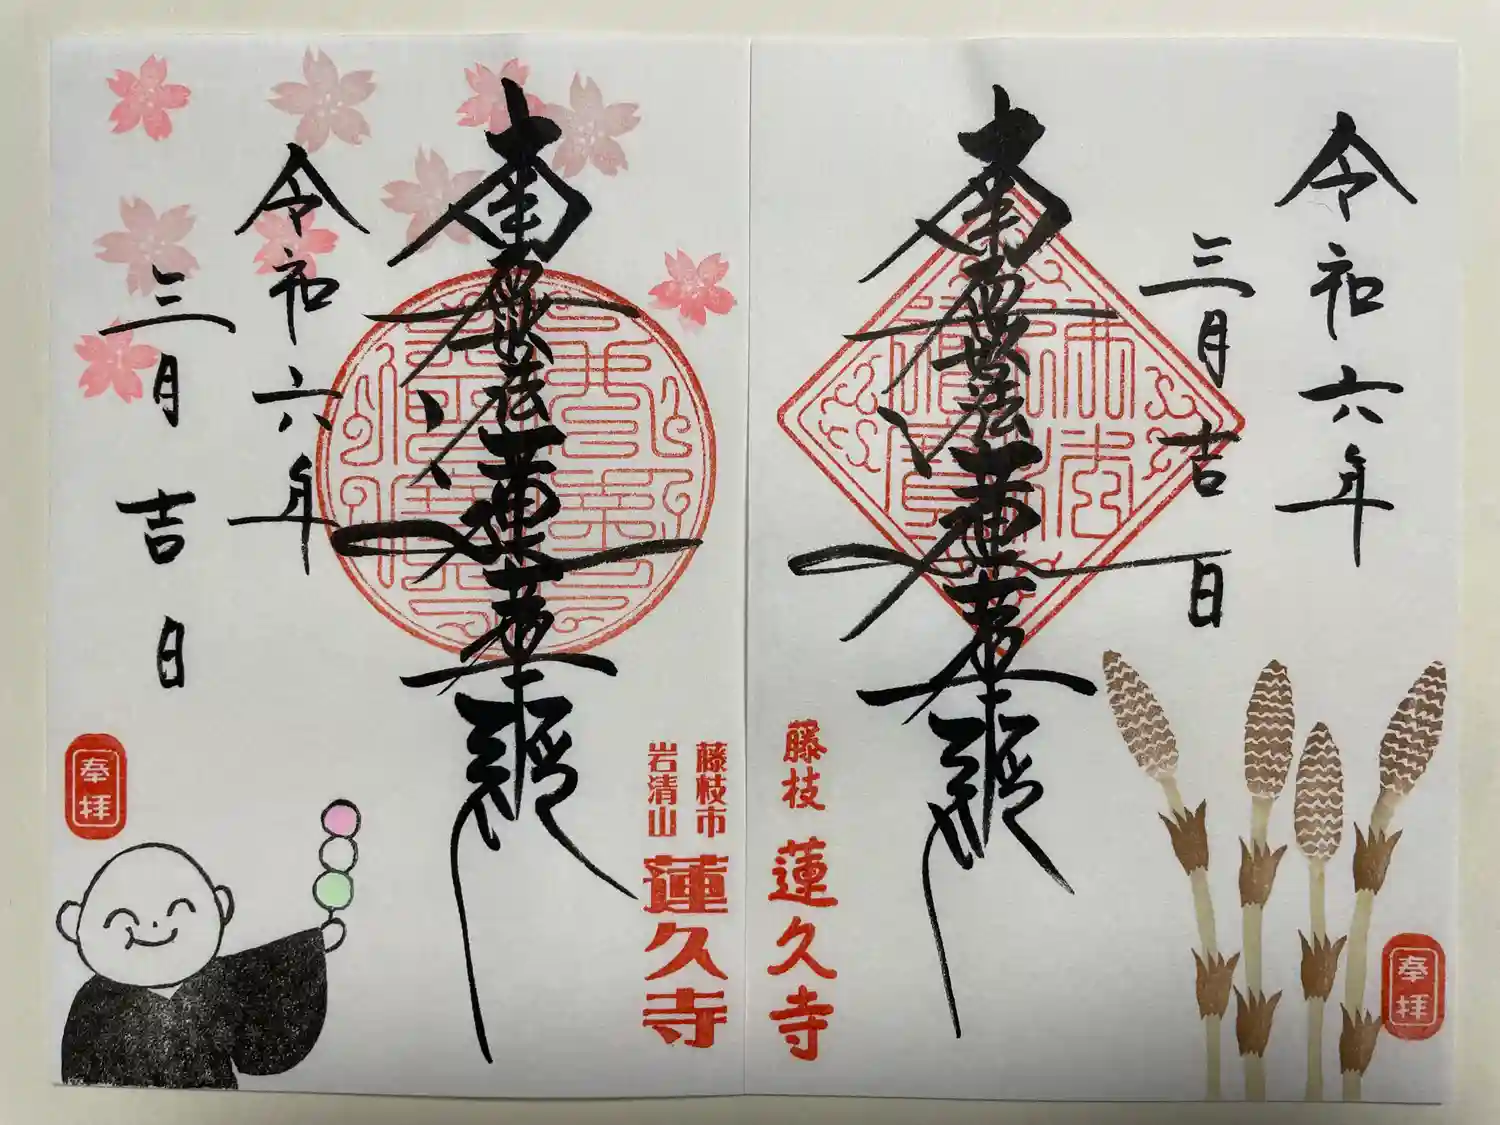 令和六年
三月吉日
南無妙法蓮華経
佛法
僧寶
藤枝
蓮久寺
奉拝
藤枝市
岩清山
蓮久寺
南無妙法蓮華経
令和六年
三月吉日
奉拝